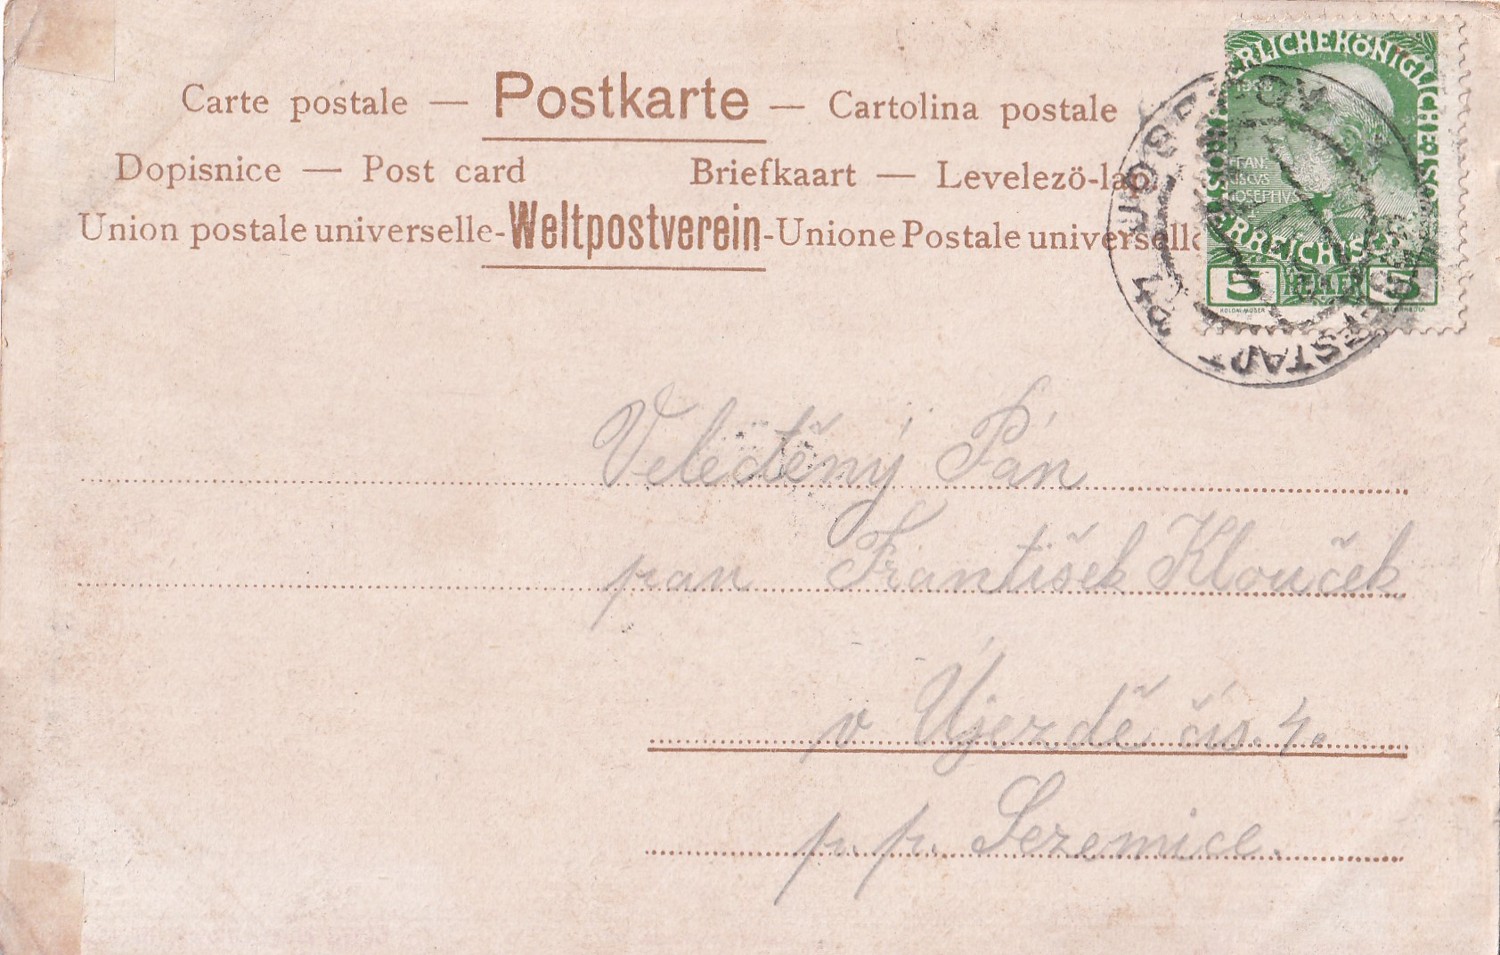 Carte postale — Postkarte — Cartolina postale
Dopisnice — Post card Briefkaart — Levelezö-lap
Union postale universelle-Weltpostverein-Unione Postale universelle
ERLICHEKÖNIGLICHEÖST
1908
FRAN-
CISCVS
IOSEPHVS
I
ERREICHISCHE
5 HELLER 5
KOLOM. MOSER
JOSEFOV
JOSEFSTADT
Velectěný Pán
pan František Klouček
v Újezdě čís. 4.
p. p. Sezemice.